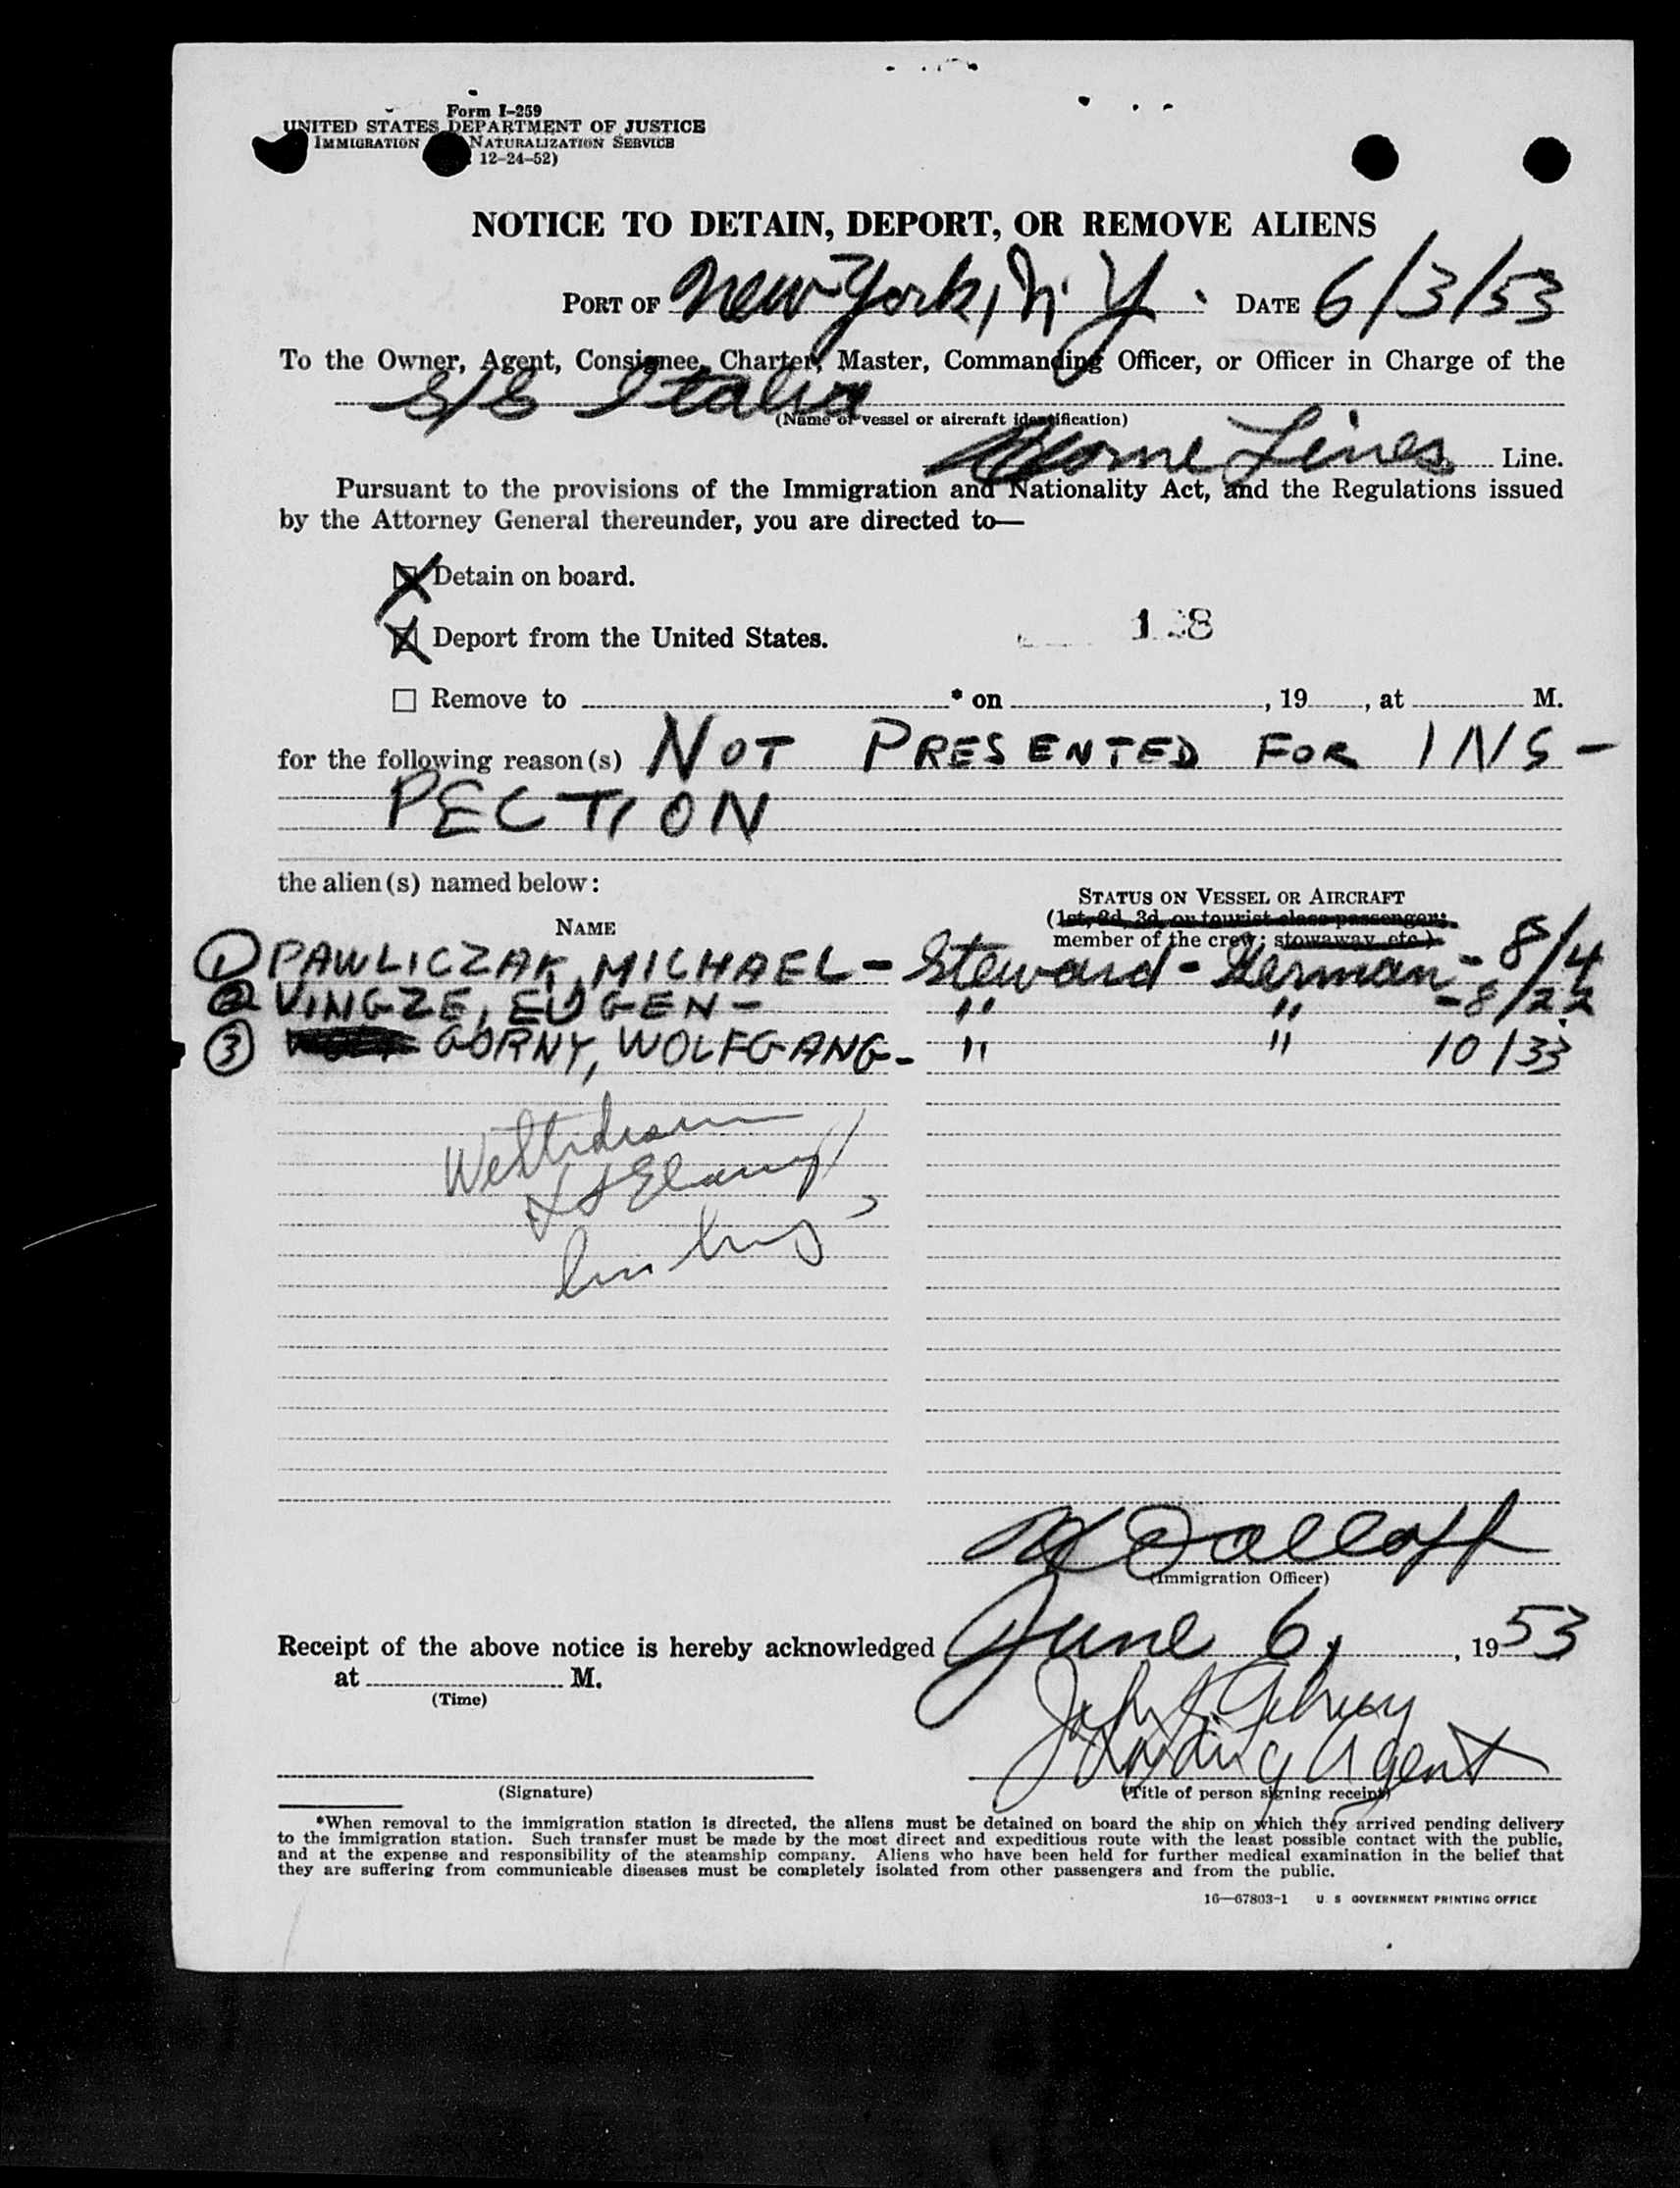 Form I-259
UNITED STATES DEPARTMENT OF JUSTICE
IMMIGRATION NATURALIZATION SERVICE
12-24-52)
NOTICE TO DETAIN, DEPORT, OR REMOVE ALIENS
PORT OF New York, N. Y. DATE 6/3/53
To the Owner, Agent, Consignee, Charter, Master, Commanding Officer, or Officer in Charge of the
S/S Italia
(Name of vessel or aircraft identification)
Home Lines Line.
Pursuant to the provisions of the Immigration and Nationality Act, and the Regulations issued
by the Attorney General thereunder, you are directed to—
Detain on board.
Deport from the United States.
Remove to * on , 19 , at M.
for the following reason(s) NOT PRESENTED FOR INS-
PECTION
the alien(s) named below:
STATUS ON VESSEL OR AIRCRAFT
(1st, 2d, 3d, or tourist class passenger;
NAME
member of the crew; stowaway, etc.)
① PAWLICZAK, MICHAEL - Steward - German - 8/4
② VINGZE, EUGEN - " " - 8/22
③ GORNY, WOLFGANG - " " 10/33
(Immigration Officer)
Receipt of the above notice is hereby acknowledged June 6, , 1953
at M.
(Time)
Agent
(Signature)
(Title of person signing receipt)
*When removal to the immigration station is directed, the aliens must be detained on board the ship on which they arrived pending delivery
to the immigration station. Such transfer must be made by the most direct and expeditious route with the least possible contact with the public,
and at the expense and responsibility of the steamship company. Aliens who have been held for further medical examination in the belief that
they are suffering from communicable diseases must be completely isolated from other passengers and from the public.
16—67803-1 U. S GOVERNMENT PRINTING OFFICE